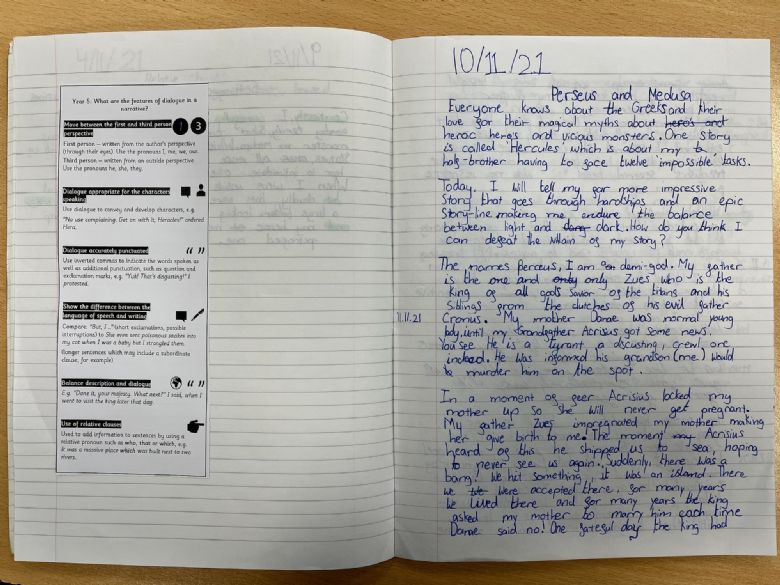 4/11/21
9/11/21
Year 5: What are the features of dialogue in a
narrative?
Move between the first and third person
perspective
1 3
First person – written from the author's perspective
(through their eyes). Use the pronouns I, me, we, our.
Third person – written from an outside perspective
Use the pronouns he, she, they.
Dialogue appropriate for the characters
speaking
Use dialogue to convey and develop characters, e.g.
"No use complaining. Get on with it, Heracles!" ordered
Hera.
Dialogue accurately punctuated
Use inverted commas to indicate the words spoken as
well as additional punctuation, such as question and
exclamation marks, e.g. "Yuk! That's disgusting!" I
protested.
Show the difference between the
language of speech and writing
Compare: "But, I ..."(short exclamations, possible
interruptions) to She even sent poisonous snakes into
my cot when I was a baby but I strangled them.
(longer sentences which may include a subordinate
clause, for example)
Balance description and dialogue
E.g. "Done it, your majesty. What next?" I said, when I
went to visit the king later that day.
Use of relative clauses
Used to add information to sentences by using a
relative pronoun such as who, that or which, e.g.
It was a massive place which was built next to two
rivers.
10/11/21
Perseus and Medusa
Everyone knows about the Greeks and their
love for their magical myths about heros and
heroic heros and vicious monsters. One story
is called 'Hercules' which is about my b
half-brother having to face twelve 'impossible' tasks.
Today, I will tell my far more impressive
story that goes through hardships and an epic
story-line making me endure the balance
between light and dark. How do you think I
can defeat the villain of my story?
The names Perceus, I am demi-god. My father
is the one and only only Zues who is the
king of all gods savior of the titans and his
siblings from the clutches of his evil father
11.11.21
Cronus. My mother Danae was normal young
lady, until my Grandfather Acrisius got some news.
You see He is a Tyrant, a discusting, crewl, orc,
indeed. He was informed his grandson (me) would
murder him on the spot.
In a moment of feer Acrisius locked my
mother up so she will never get pregnant.
My father Zues impregnated my mother making
her give birth to me. The moment Acrisius
heard of this he shipped us to sea, hoping
to never see us again. Suddenly, there was a
bam! We hit something, it was an island. There
we were accepted there, for many years
we lived there and for many years the king
asked my mother to marry him each time
Danae said no! One fateful day the king had